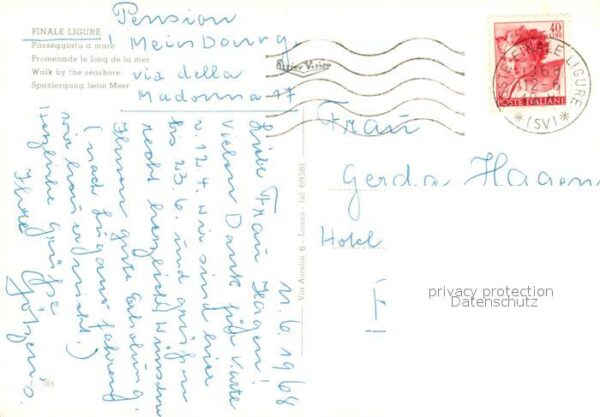 FINALE LIGURE
Passeggiata a mare
Promenade le long de la mer
Walk by the seashore
Spaziergang beim Meer
Pension
Meindourg
via della
Madonna 17
11.6.1968
Liebe Frau Hagen!
Vielen Dank für Karte
v. 12.4. wir sind hier
bis 23.6. und grüßen
recht herzlich wünschen
Ihnen gute Erholung.
(nach Lugano fahren
wir heuer nicht.)
Herzliche Grüße
Ihre
186
Via Aurelia 6 - Loano - tel. 69381
40
POSTE ITALIANE
FINALE LIGURE
(SV)
Frau
Gerda Hagen
Hotel
I
privacy protection
Datenschutz